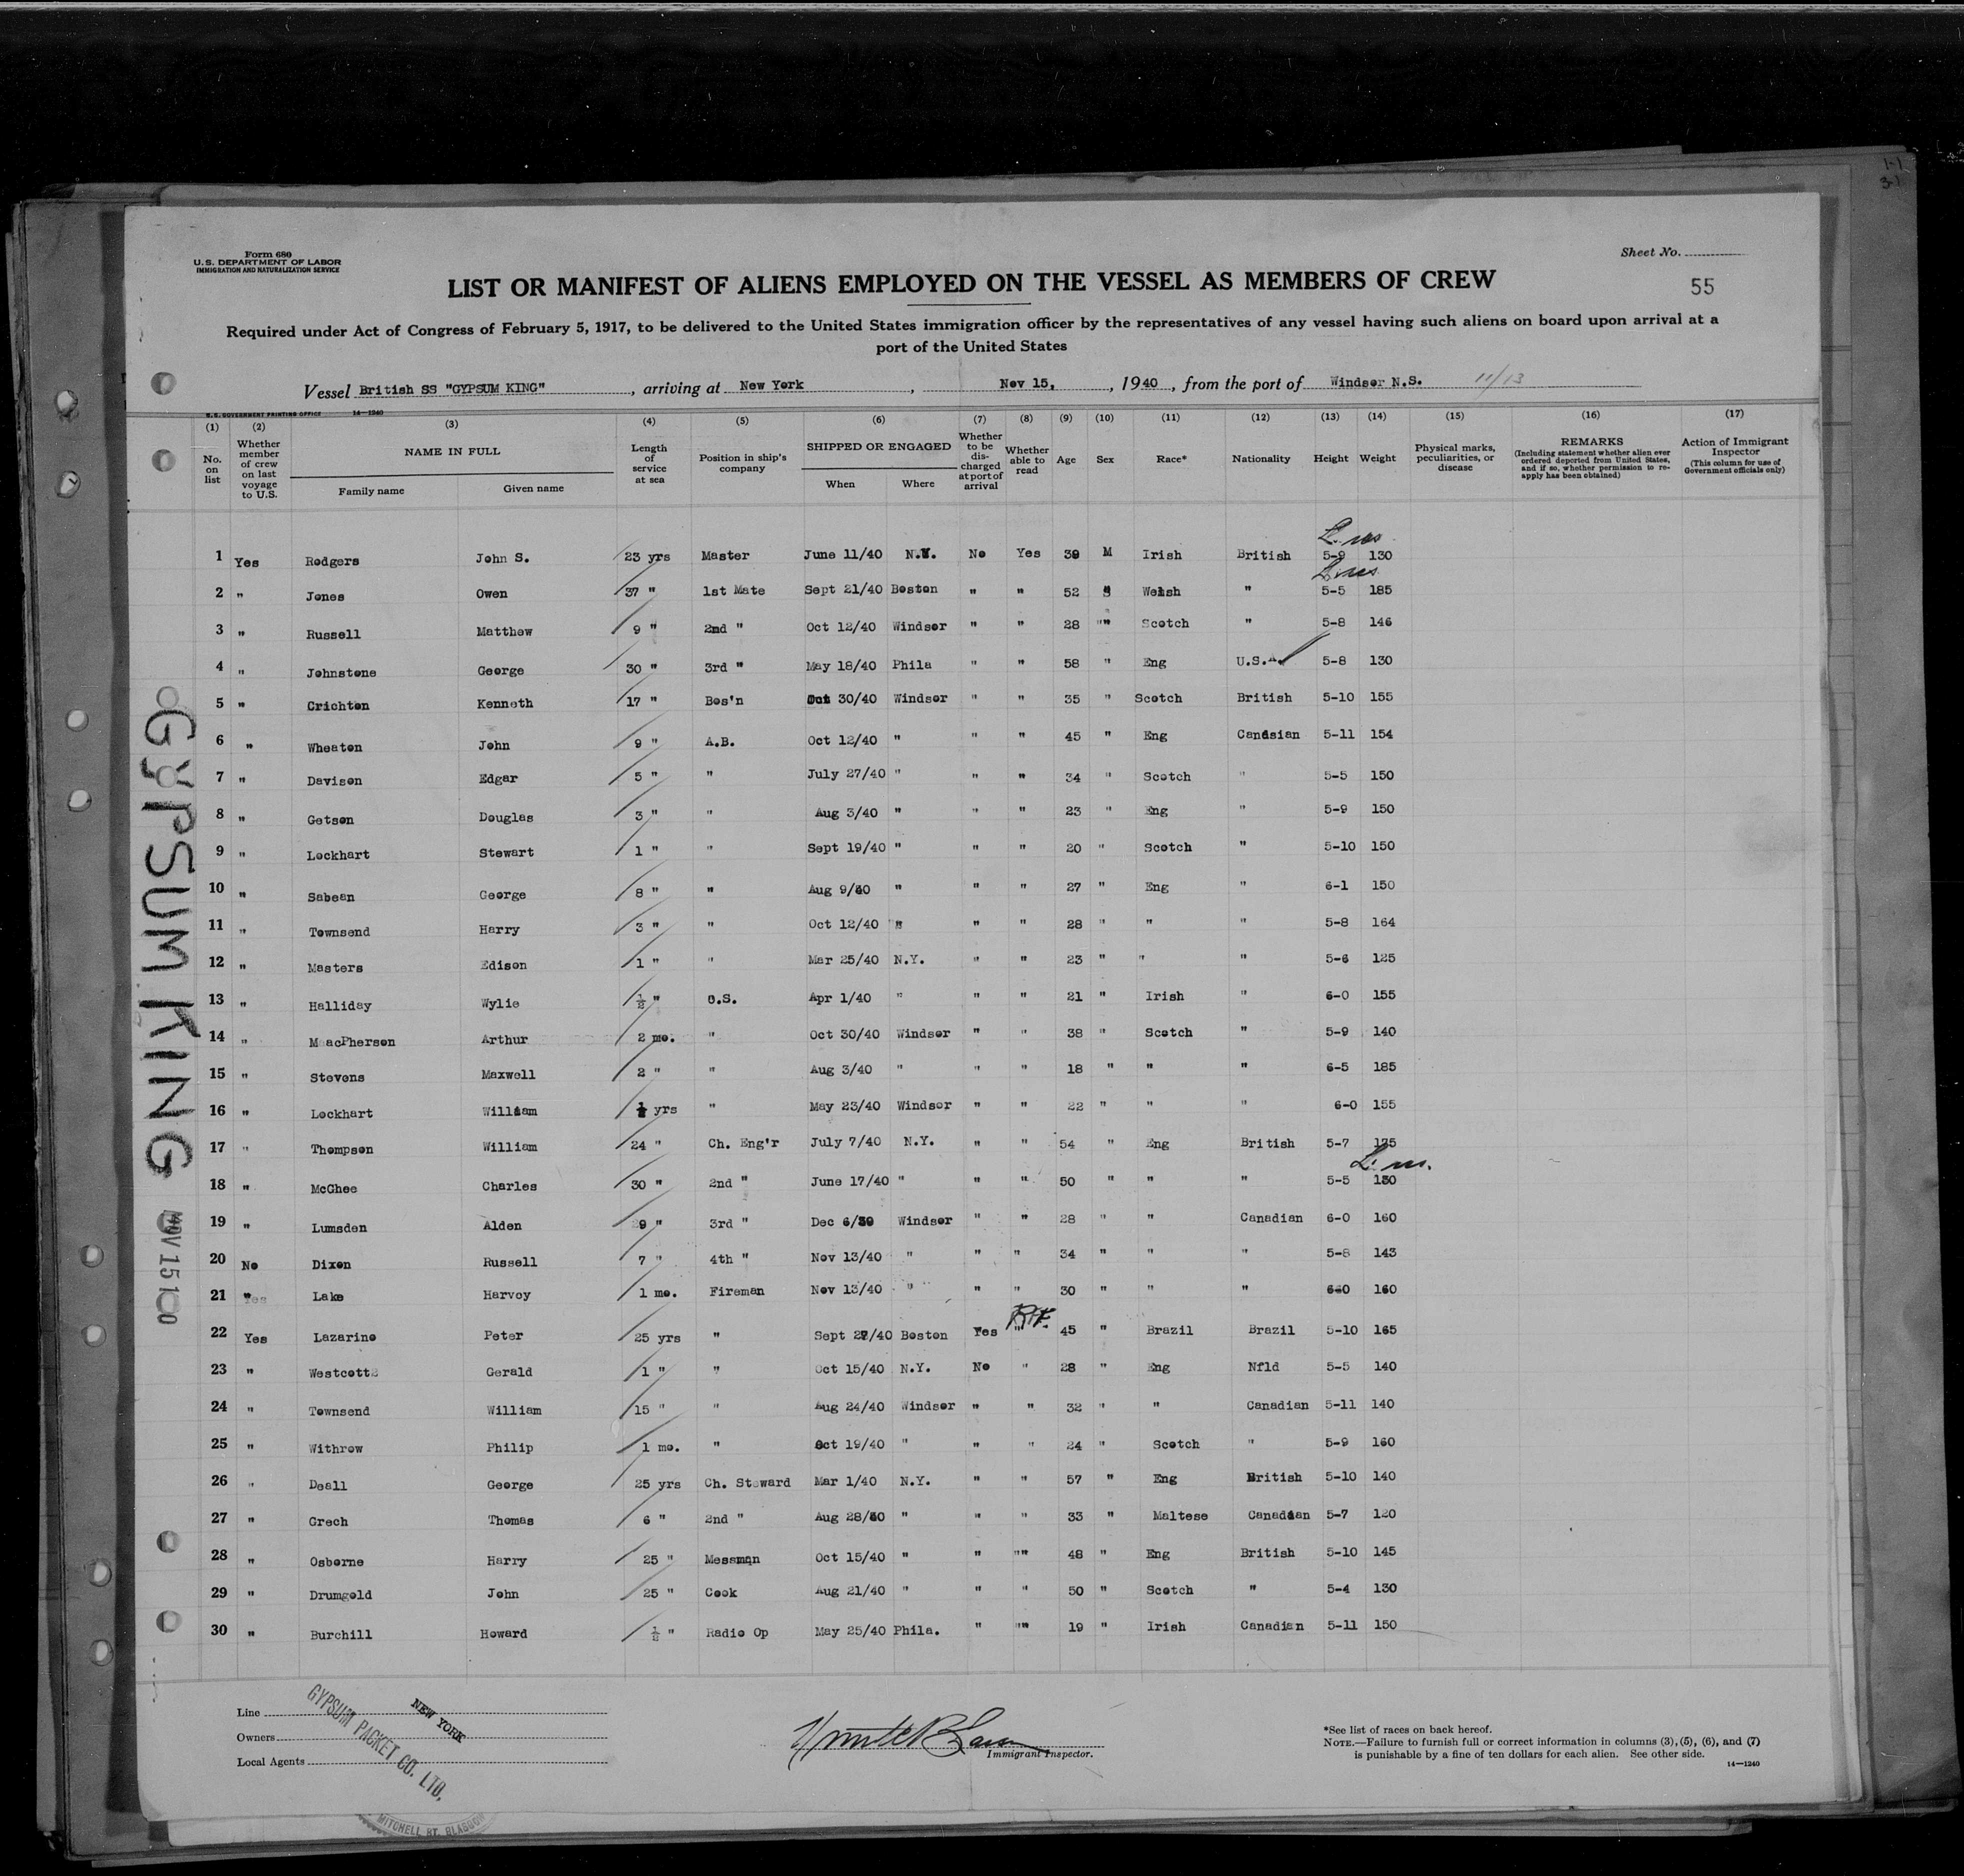 1-1
3-1
Form 680
U.S. DEPARTMENT OF LABOR
IMMIGRATION AND NATURALIZATION SERVICE
Sheet No.
LIST OR MANIFEST OF ALIENS EMPLOYED ON THE VESSEL AS MEMBERS OF CREW
55
Required under Act of Congress of February 5, 1917, to be delivered to the United States immigration officer by the representatives of any vessel having such aliens on board upon arrival at a
port of the United States
Vessel British SS "GYPSUM KING", arriving at New York, Nov 15, 1940, from the port of Windsor N.S. 11/13
U.S. GOVERNMENT PRINTING OFFICE 14—1240
(1) (2) (3) (4) (5) (6) (7) (8) (9) (10) (11) (12) (13) (14) (15) (16) (17)
No. on list
Whether member of crew on last voyage to U.S.
NAME IN FULL
Family name
Given name
Length of service at sea
Position in ship's company
SHIPPED OR ENGAGED
When
Where
Whether to be discharged at port of arrival
Whether able to read
Age
Sex
Race*
Nationality
Height
Weight
Physical marks, peculiarities, or disease
REMARKS
(Including statement whether alien ever ordered deported from United States, and if so, whether permission to reapply has been obtained)
Action of Immigrant Inspector
(This column for use of Government officials only)
1 Yes Rodgers John S. 23 yrs Master June 11/40 N.Y. No Yes 39 M Irish British 5-9 130
2 " Jones Owen 37 " 1st Mate Sept 21/40 Boston " " 52 " Welsh " 5-5 185
3 " Russell Matthew 9 " 2nd " Oct 12/40 Windsor " " 28 "" Scotch " 5-8 146
4 " Johnstone George 30 " 3rd " May 18/40 Phila " " 58 " Eng U.S.A. 5-8 130
5 " Crichton Kenneth 17 " Bos'n Oct 30/40 Windsor " " 35 " Scotch British 5-10 155
6 " Wheaton John 9 " A.B. Oct 12/40 " " " 45 " Eng Canasian 5-11 154
7 " Davison Edgar 5 " " July 27/40 " " " 34 " Scotch " 5-5 150
8 " Getson Douglas 3 " " Aug 3/40 " " " 23 " Eng " 5-9 150
9 " Lockhart Stewart 1 " " Sept 19/40 " " " 20 " Scotch " 5-10 150
10 " Sabean George 8 " " Aug 9/40 " " " 27 " Eng " 6-1 150
11 " Townsend Harry 3 " " Oct 12/40 " " " 28 " " " 5-8 164
12 " Masters Edison 1 " " Mar 25/40 N.Y. " " 23 " " " 5-6 125
13 " Halliday Wylie ½ " O.S. Apr 1/40 " " " 21 " Irish " 6-0 155
14 " MacPherson Arthur 2 mo. " Oct 30/40 Windsor " " 38 " Scotch " 5-9 140
15 " Stevens Maxwell 2 " " Aug 3/40 " " " 18 " " " 6-5 185
16 " Lockhart William ½ yrs " May 23/40 Windsor " " 22 " " " 6-0 155
17 " Thompson William 24 " Ch. Eng'r July 7/40 N.Y. " " 54 " Eng British 5-7
18 " McGhee Charles 30 " 2nd " June 17/40 " " " 50 " " " 5-5 130
19 " Lumsden Alden 9 " 3rd " Dec 6/39 Windsor " " 28 " " Canadian 6-0 160
20 No Dixon Russell 7 " 4th " Nov 13/40 " " " 34 " " " 5-8 143
21 " Lake Harvey 1 mo. Fireman Nov 13/40 " " " 30 " " " 6-0 160
22 Yes Lazarino Peter 25 yrs " Sept /40 Boston Yes " 45 " Brazil Brazil 5-10 165
23 " Westcott Gerald 1 " " Oct 15/40 N.Y. No " 28 " Eng Nfld 5-5 140
24 " Townsend William 15 " " Aug 24/40 Windsor " " 32 " " Canadian 5-11 140
25 " Withrow Philip 1 mo. " Oct 19/40 " " " 24 " Scotch " 5-9 160
26 " Deall George 25 yrs Ch. Steward Mar 1/40 N.Y. " " 57 " Eng British 5-10 140
27 " Grech Thomas 6 " 2nd " Aug 28/40 " " " 33 " Maltese Canadian 5-7 120
28 " Osborne Harry 25 " Messman Oct 15/40 " " "" 48 " Eng British 5-10 145
29 " Drumgold John 25 " Cook Aug 21/40 " " " 50 " Scotch " 5-4 130
30 " Burchill Howard ½ " Radio Op May 25/40 Phila. " "" 19 " Irish Canadian 5-11 150
GYPSUM KING
NOV 15
Line
Owners
Local Agents
NEW YORK
GYPSUM PACKET CO. LTD,
MITCHELL ST. GLASGOW
Immigrant Inspector.
*See list of races on back hereof.
NOTE.—Failure to furnish full or correct information in columns (3), (5), (6), and (7)
is punishable by a fine of ten dollars for each alien. See other side.
14—1240